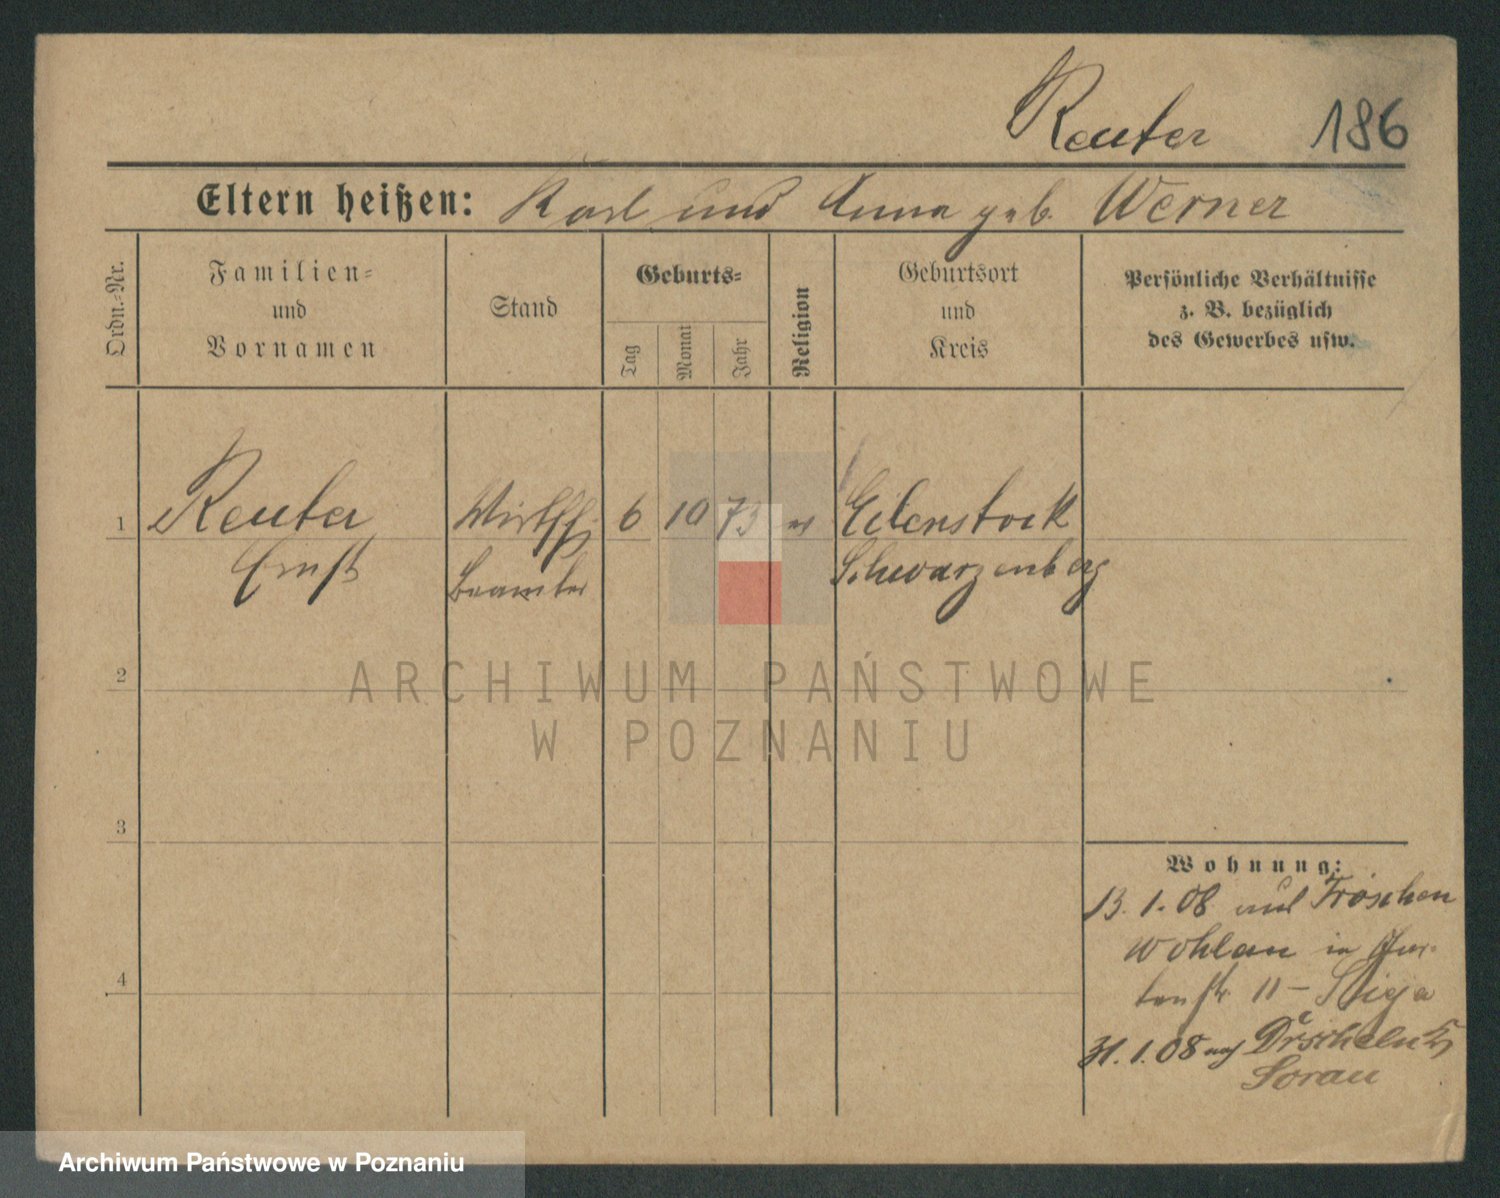 Reuter 186
Eltern heißen: Karl und Anna geb. Werner
Ordn.-Nr.
Familien-
und
Vornamen
Stand
Geburts-
Tag
Monat
Jahr
Religion
Geburtsort
und
Kreis
Persönliche Verhältnisse
z. B. bezüglich
des Gewerbes usw.
1 Reuter 6 10 73 Eibenstock
Ernst Beamter Schwarzenberg
2
ARCHIWUM PAŃSTWOWE
W POZNANIU
3
Wohnung:
13. 1. 08 aus Tröschen
Wohlau in Gar-
4
tenstr 11 –
31. 1. 08 nach
Sorau
Archiwum Państwowe w Poznaniu